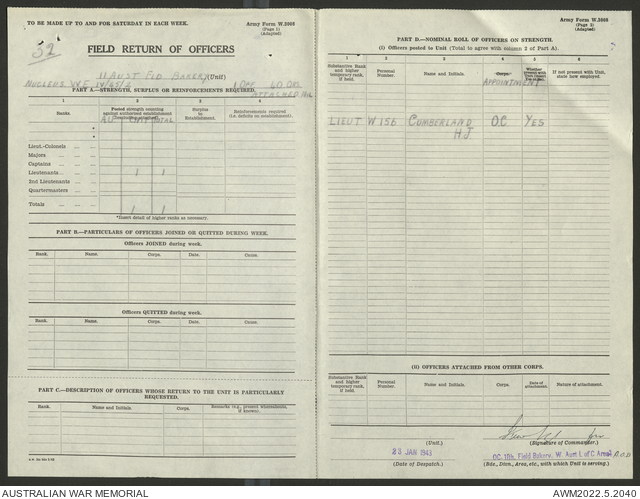 TO BE MADE UP TO AND FOR SATURDAY IN EACH WEEK.
Army Form W.3008
(Page 1)
(Adapted)
52
FIELD RETURN OF OFFICERS
11 AUST FLD BAKERY (Unit)
PART A.—STRENGTH, SURPLUS OR REINFORCEMENTS REQUIRED.
1 2 3 4
Ranks.
Posted strength counting against authorised establishment
Surplus to Establishment.
Reinforcements required (i.e. deficits on establishment).
TOTAL
Lieut.-Colonels
Majors
Captains
Lieutenants 1 1
2nd Lieutenants
Quartermasters
Totals 1 1
*Insert detail of higher ranks as necessary.
PART B.—PARTICULARS OF OFFICERS JOINED OR QUITTED DURING WEEK.
Officers JOINED during week.
Rank. Name. Corps. Date. Cause.
Officers QUITTED during week.
Rank. Name. Corps. Date. Cause.
PART C.—DESCRIPTION OF OFFICERS WHOSE RETURN TO THE UNIT IS PARTICULARLY REQUESTED.
Rank. Name and Initials. Corps. Remarks (e.g., present whereabouts, if known).
Army Form W.3008
(Page 2)
(Adapted)
PART D.—NOMINAL ROLL OF OFFICERS ON STRENGTH.
(i) Officers posted to Unit (Total to agree with column 2 of Part A).
1 2 3 4 5 6
Substantive Rank and higher temporary rank, if held.
Personal Number.
Name and Initials.
Corps.
APPOINTMENT
If not present with Unit, state how employed.
LIEUT W156 CUMBERLAND H.J. O.C YES
(ii) OFFICERS ATTACHED FROM OTHER CORPS.
Substantive Rank and higher temporary rank, if held.
Personal Number.
Name and Initials.
Corps.
Date of attachment.
Nature of attachment.
(Unit.)
(Signature of Commander.)
23 JAN 1943
(Date of Despatch.)
(Bde., Divn., Area, etc., with which Unit is serving.)
AUSTRALIAN WAR MEMORIAL
AWM2022.5.2040